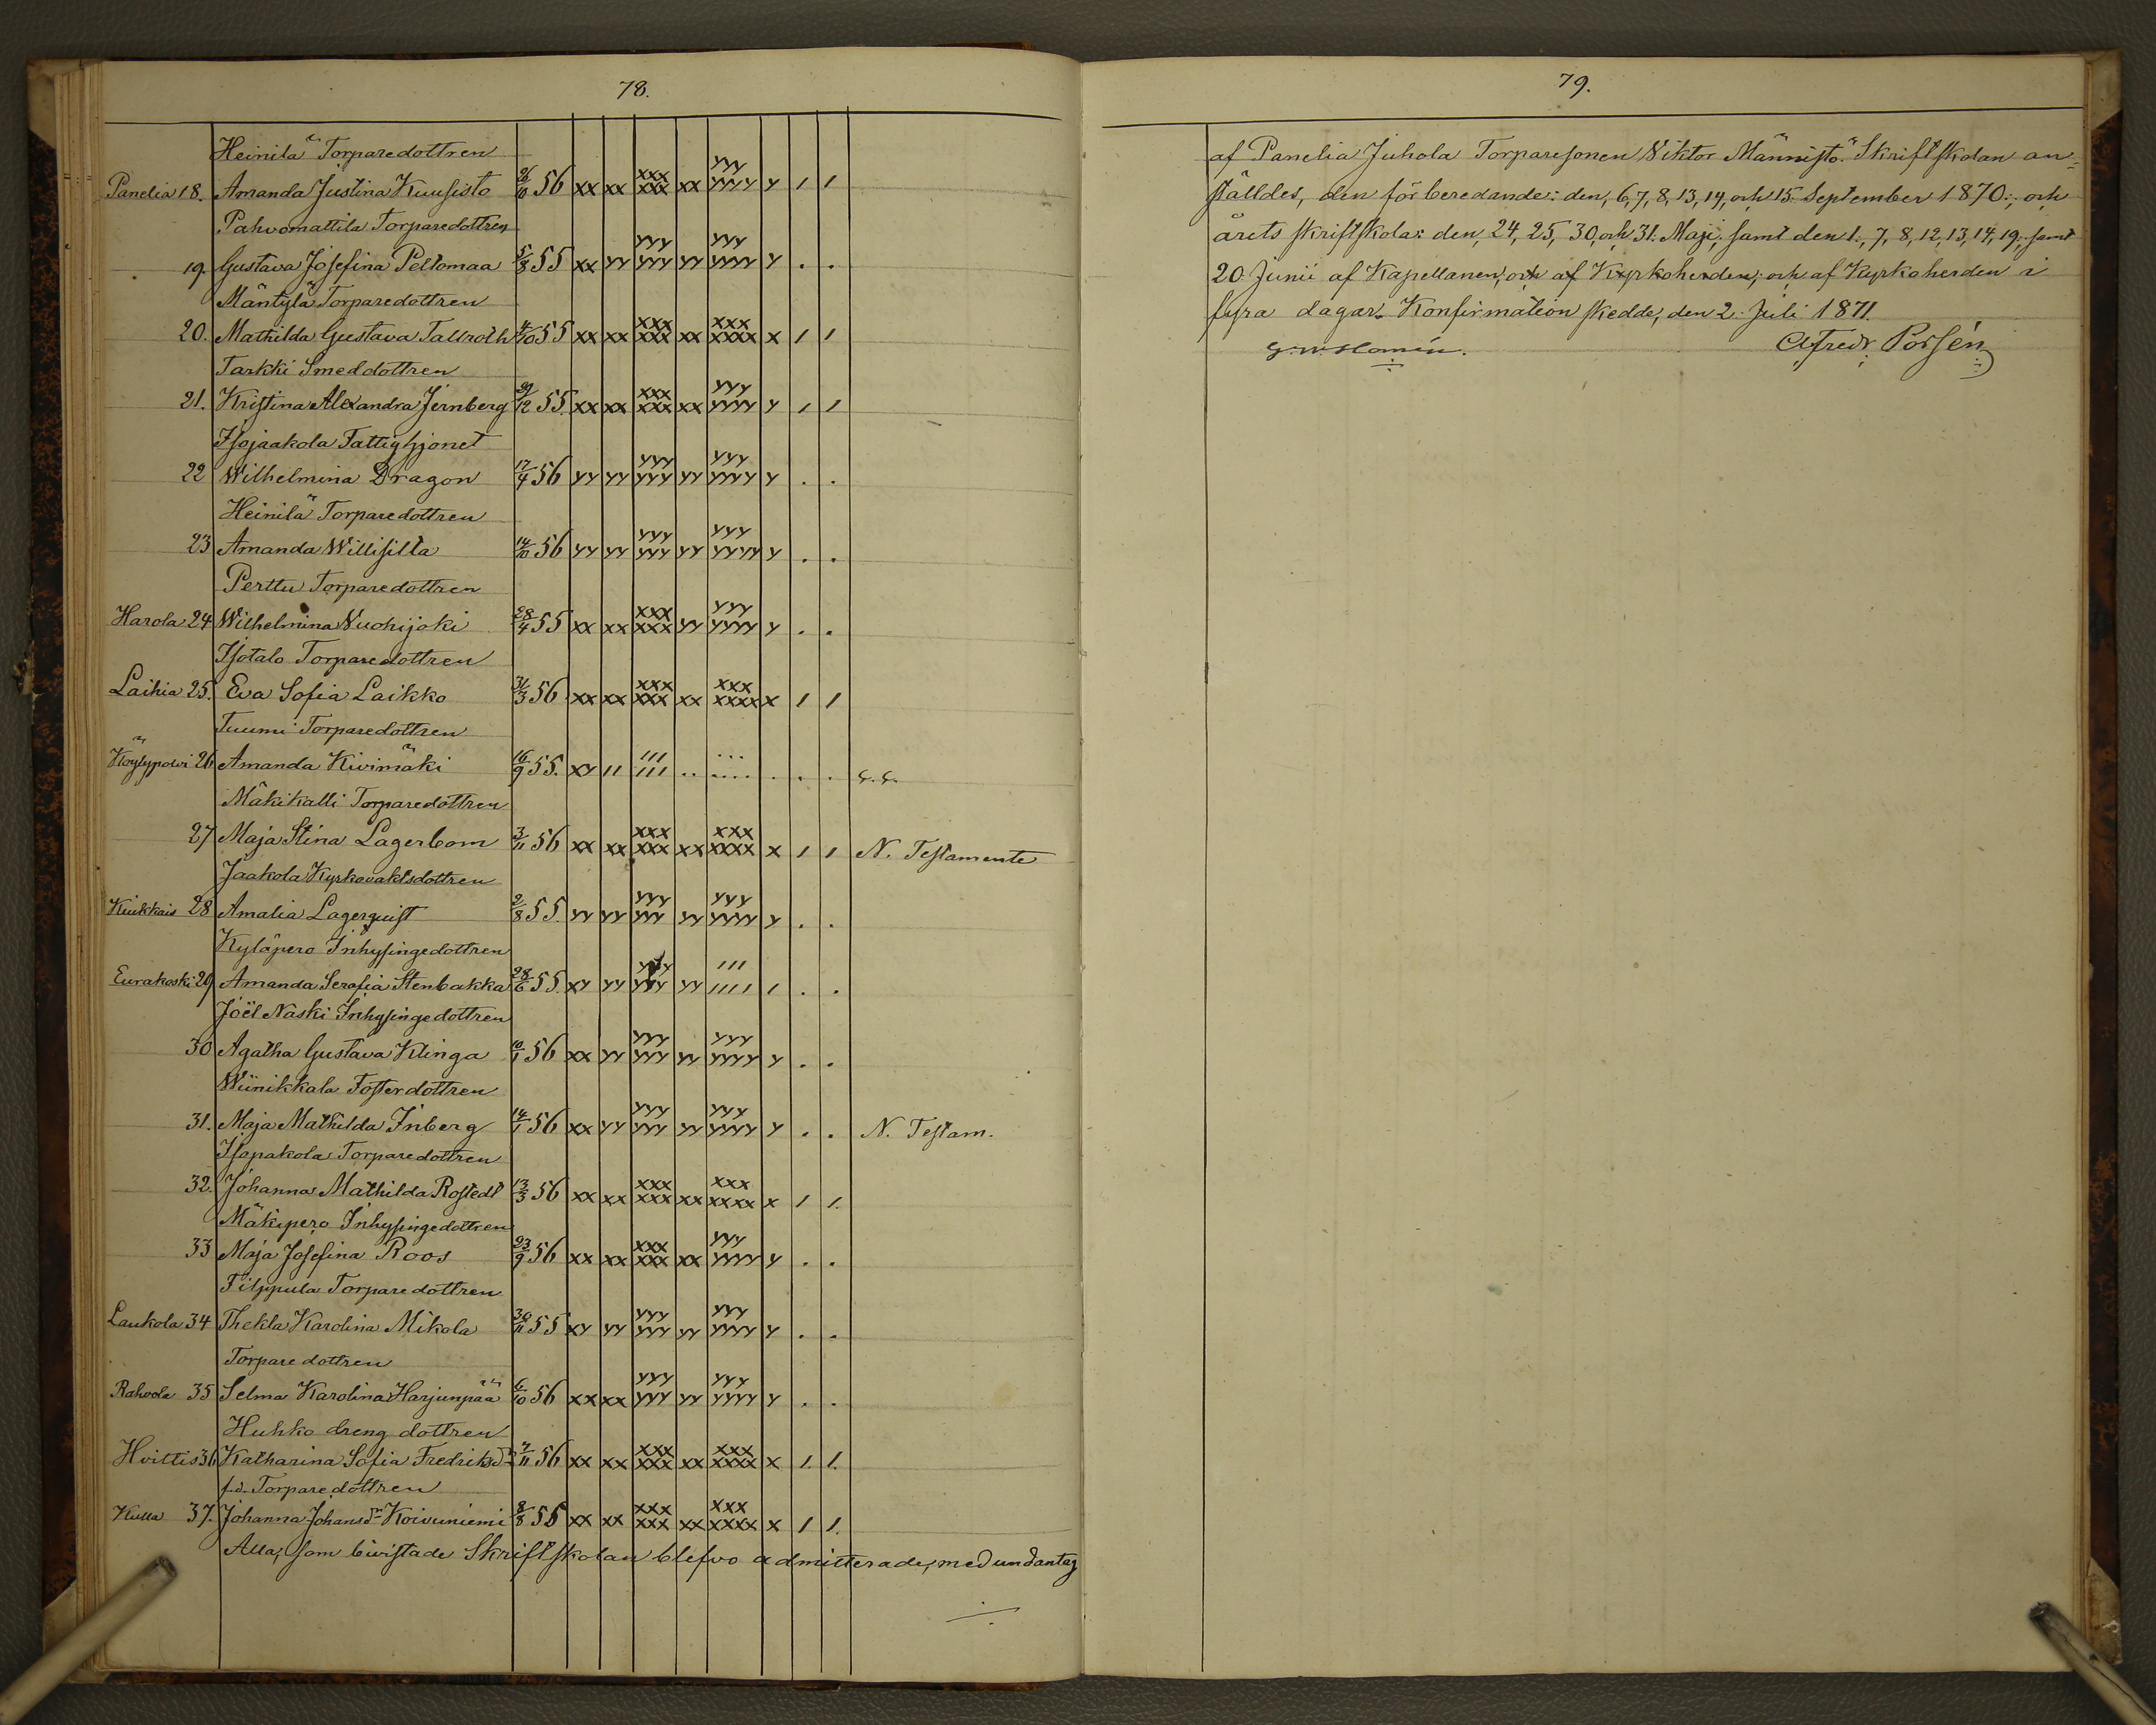 78.
Heinilä Torparedottren
Panelia 18. Amanda Justina Kuusisto 26/10 56 xx xx xxx xxx xx yyy yyyy y / /
Pahvomattila Torparedottren
19. Gustava Josefina Peltomaa 5/8 55 xx yy yyy yyy yy yyy yyyy y . .
Mäntylä Torparedottren
20. Mathilda Gustava Tallroth 4/10 55 xx xx xxx xxx xx xxx xxxx x / /
Tarkki Smeddottren
21. Kristina Alexandra Jernberg 29/12 55. xx xx xxx xxx xx yyy yyyy y / /
Isojaakola Fattighjonet
22 Wilhelmina Dragon 17/4 56 yy yy yyy yyy yy yyy yyyy y . .
Heinilä Torparedottren
23 Amanda Willisilta 14/10 56 yy yy yyy yyy yy yyy yyyy y . .
Perttu Torparedottren
Harola 24 Wilhelmina Vuohijoki 28/4 55 xx xx xxx xxx yy yyy yyyy y . .
Isotalo Torparedottren
Laihia 25. Eva Sofia Laikko 31/3 56 xx xx xxx xxx xx xxx xxxx x / /
Tuumi Torparedottren
Köylypolvi 26 Amanda Kivimäki 16/9 55. xy // /// /// .. ... .... . . .
Mäkikalli Torparedottren
27 Maja Stina Lagerbom 3/11 56 xx xx xxx xxx xx xxx xxxx x / / N. Testamente
Jaakola Kyrkovaktsdottren
Kiukkais 28 Amalia Lagerquist 2/8 55. yy yy yyy yyy yy yyy yyyy y . .
Kyläpero Inhysingedottren
Eurakoski 29 Amanda Serafia Stenbakka 28/6 55. xy yy yyy yyy yy /// //// / . .
Joël Naski Inhysingedottren
30 Agatha Gustava Klinga 10/1 56 xx yy yyy yyy yy yyy yyyy y . .
Wiinikkala Fosterdottren
31. Maja Mathilda Inberg 14/1 56 xx yy yyy yyy yy yyy yyyy y . . N. Testam.
Isopakola Torparedottren
32. Johanna Mathilda Rostedt 13/3 56 xx xx xxx xxx xx xxx xxxx x / /.
Mäkipero Inhysingedottren
33 Maja Josefina Roos 23/9 56 xx xx xxx xxx xx yyy yyyy y . .
Filppula Torparedottren
Laukola 34 Thekla Karolina Mikola 30/11 55 xy yy yyy yyy yy yyy yyyy y . .
Torparedottren
Rahvola 35 Selma Karolina Harjunpää 6/10 56 xx xx yyy yyy yy yyy yyyy y . .
Huhko dreng dottren
Hvittis 36 Katharina Sofia Fredriksdr 7/11 56 xx xx xxx xxx xx xxx xxxx x /. /.
f.d. Torparedottren
Kulla 37. Johanna Johansdr Koivuniemi 8/8 55 xx xx xxx xxx xx xxx xxxx x / /.
Alla, som bivistade Skriftskolan blefvo admitterade, med undantag
79.
af Panelia Juhola Torparesonen Viktor Männistö. Skriftskolan an-
ställdes, den förberedande: den, 6, 7, 8, 13, 14, och 15. September 1870; och
årets skriftskola: den, 24, 25, 30, och 31. Maji; samt den 1, 7, 8, 12, 13, 14, 19, samt
20. Junii af Kapellanen, och af Kyrkoherden; och af Kyrkoherden i
fyra dagar. Konfirmation skedde, den 2. Juli 1871.
Alfredr Porsén